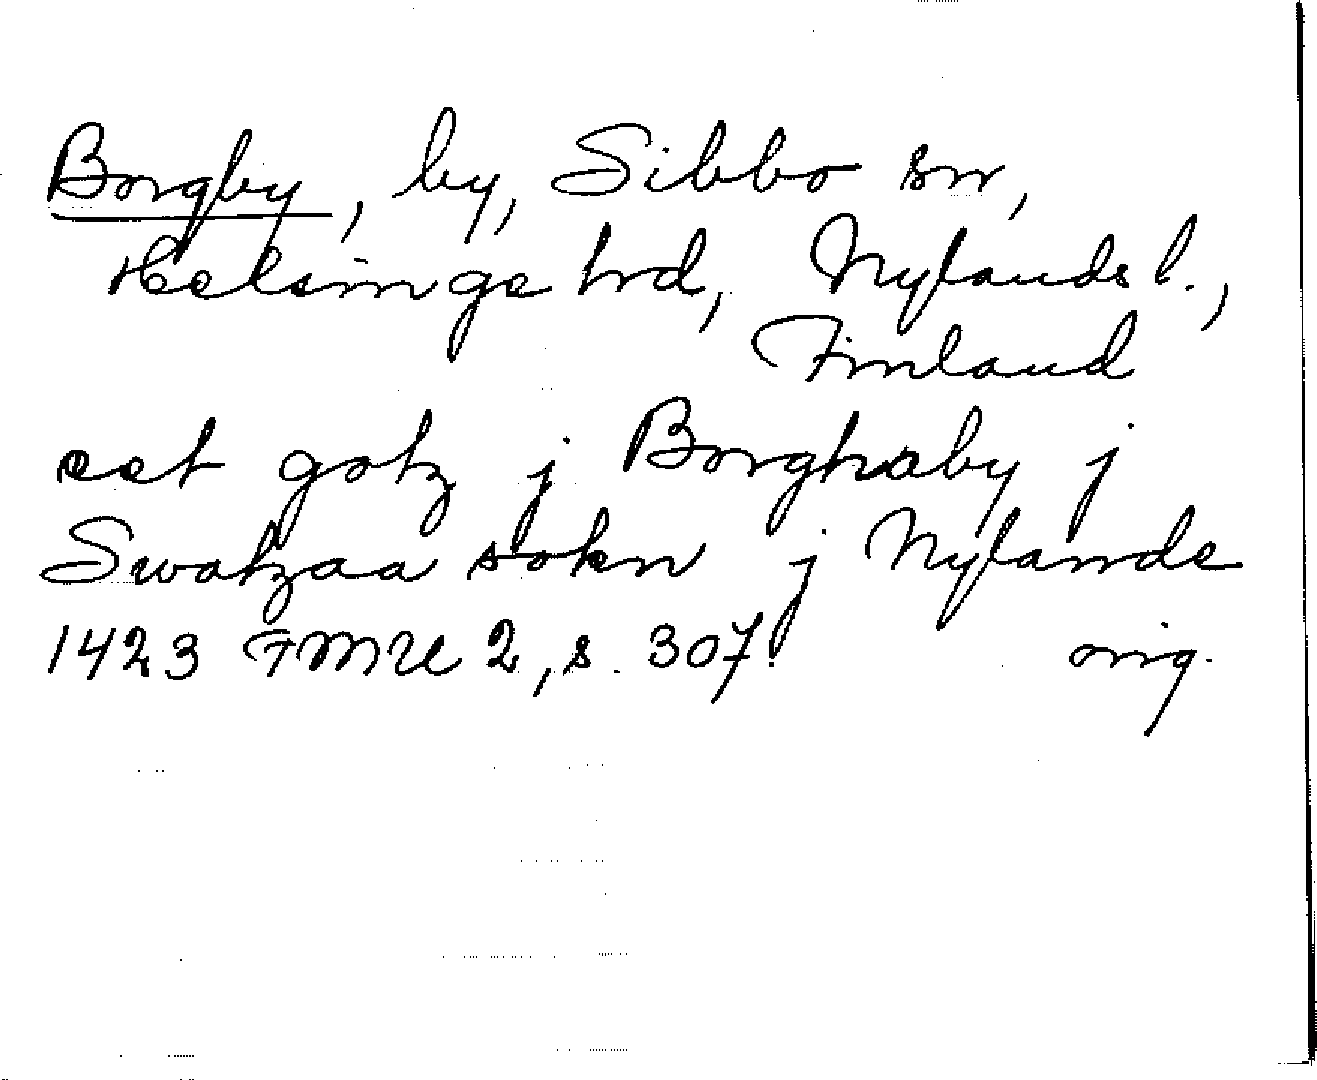 Borgby, by, Sibbo sn,
Helsinge hrd, Nylands l.,
Finland
eet gotz j Borghaby j
Swatzaa sokn j Nylande
1423 FMU 2, s. 307. orig.